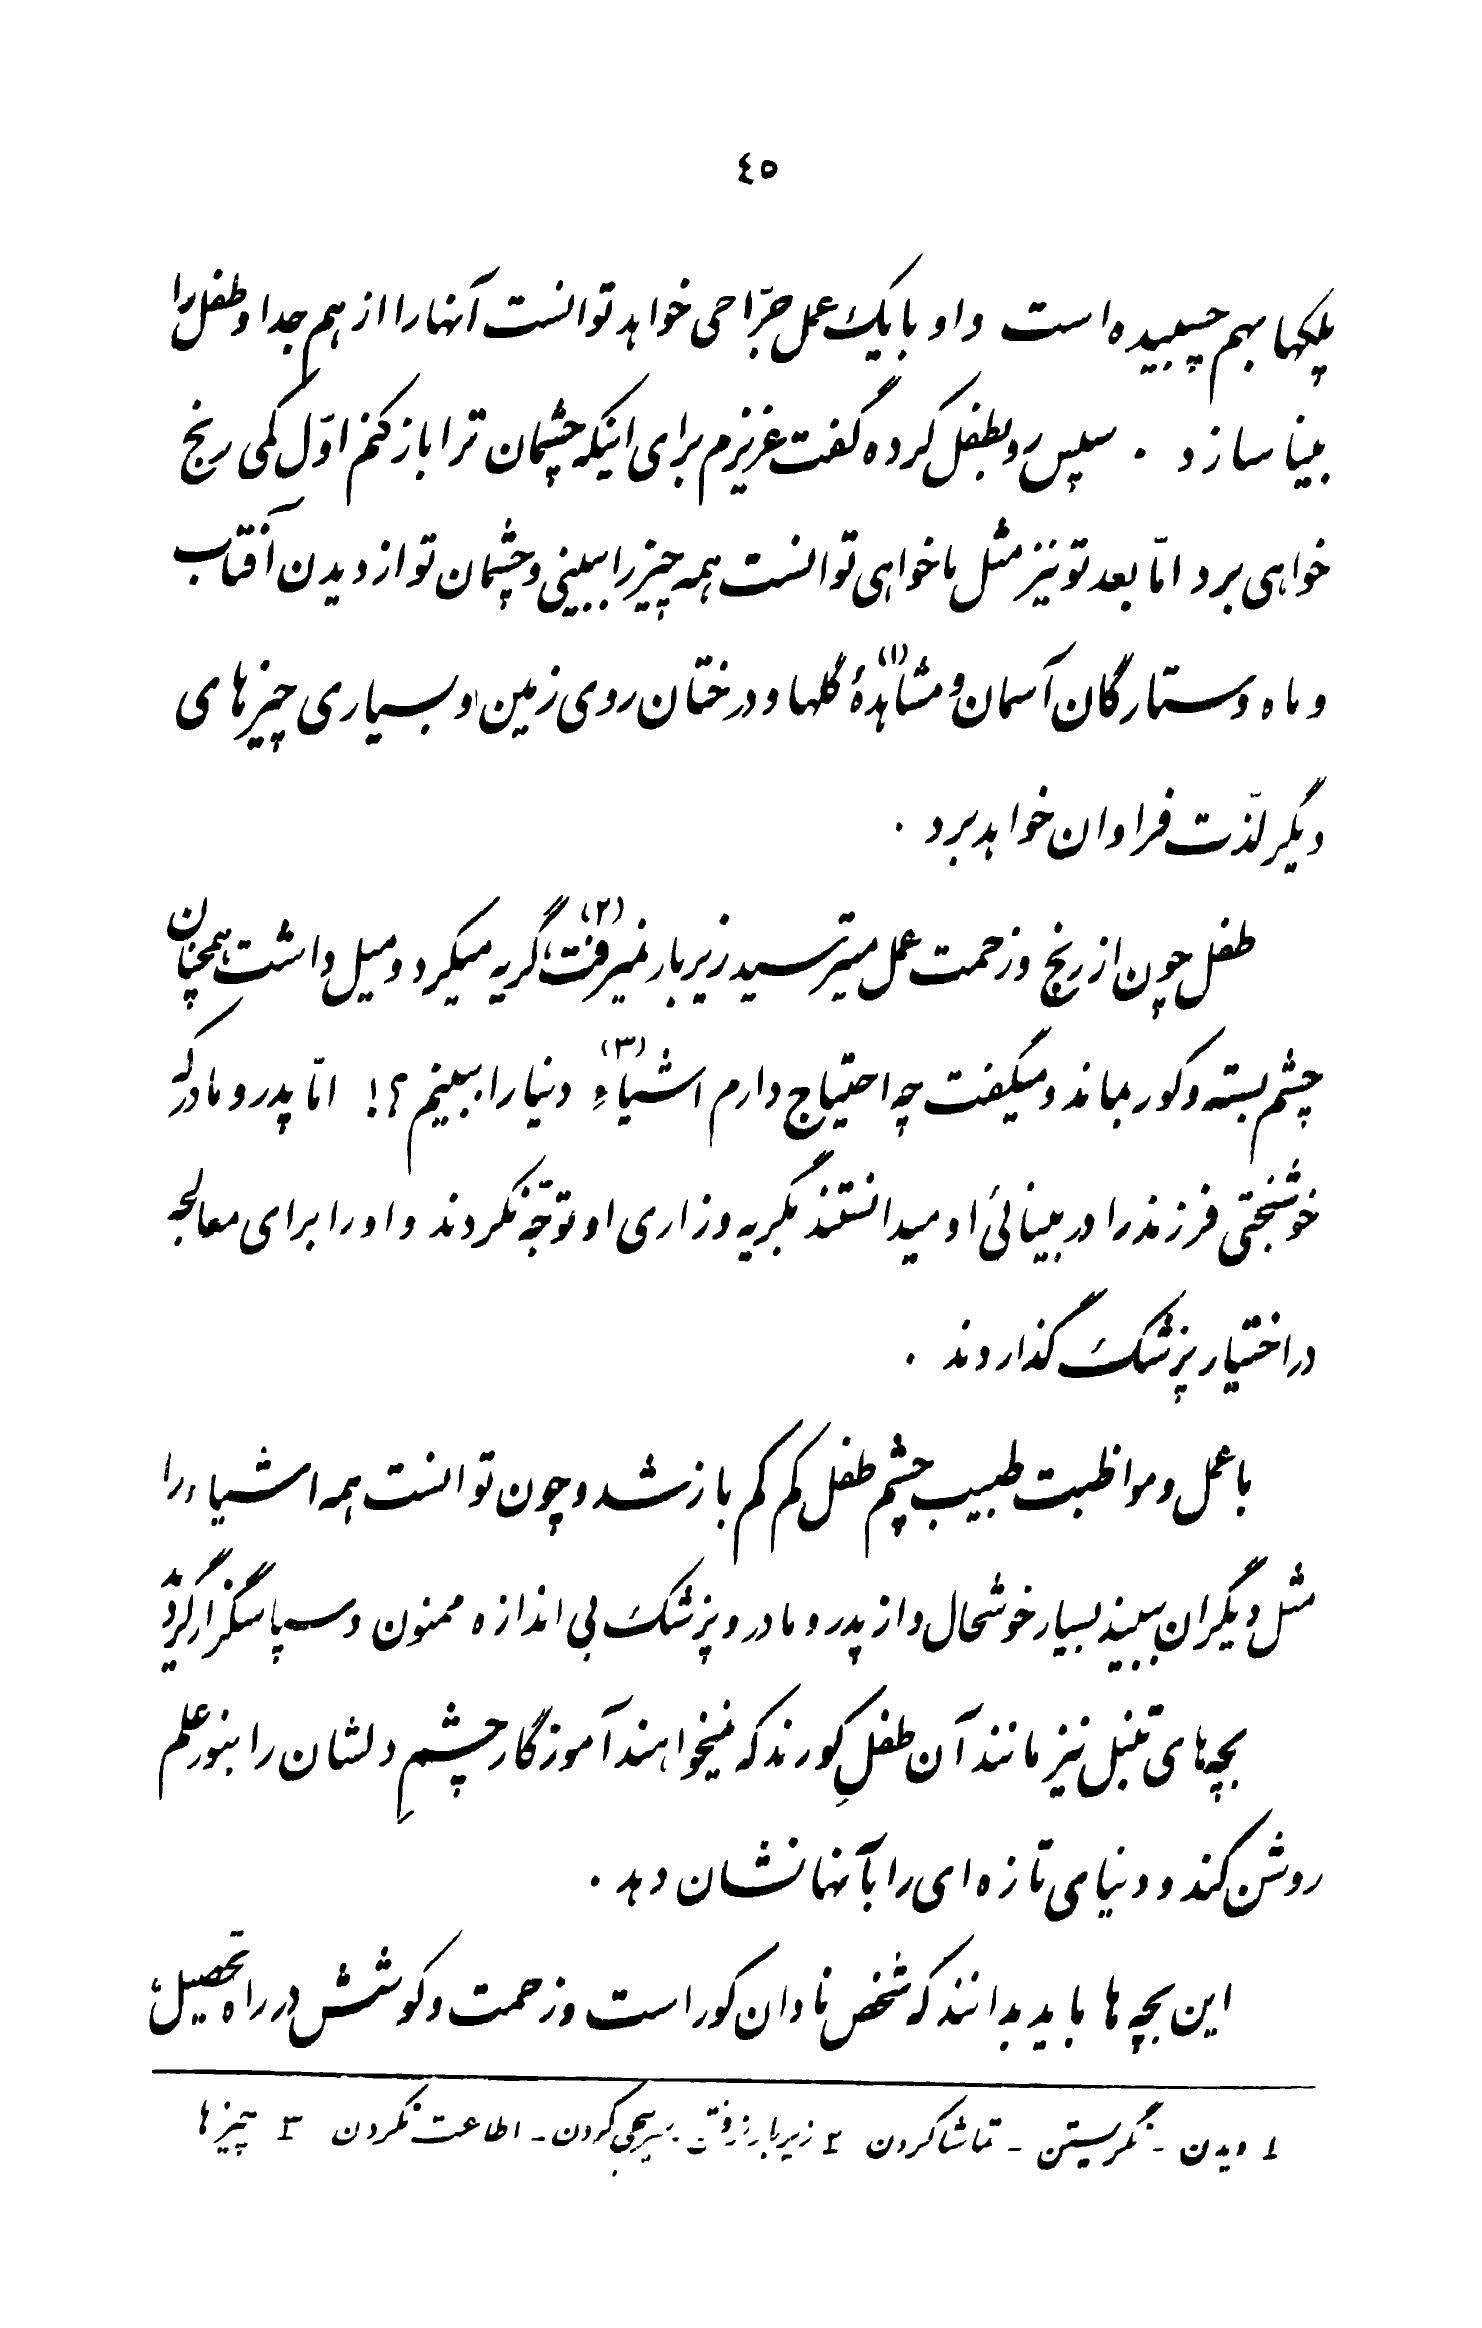 ٤٥
پلکها بهم چسبیده است و او با یک عمل جرّاحی خواهد توانست آنها را از هم جدا و طفل را
بینا سازد . سپس رو بطفل کرده گفت عزیزم برای اینکه چشمان ترا باز کنم اوّل کمی رنج
خواهی برد امّا بعد تو نیز مثل ما خواهی توانست همه چیز را ببینی و چشمان تو از دیدن آفتاب
و ماه و ستارگان آسمان و مشاهدهٔ (۱) گلها و درختان روی زمین و بسیاری چیزهای
دیگر لذّت فراوان خواهد برد .
طفل چون از رنج و زحمت عمل میترسید زیر بار نمیرفت (۲)، گریه میکرد و میل داشت همچنان
چشم بسته و کور بماند و میگفت چه احتیاج دارم اشیاءِ (۳) دنیا را ببینم ؟! امّا پدر و مادر که
خوشبختی فرزند را در بینائی او میدانستند بگریه و زاری او توجّه نکردند و او را برای معالجه
در اختیار پزشک گذاردند .
با عمل و مواظبت طبیب چشم طفل کم کم باز شد و چون توانست همه اشیاء را
مثل دیگران ببیند بسیار خوشحال و از پدر و مادر و پزشک بی اندازه ممنون و سپاسگزار گردید
بچه‌های تنبل نیز مانند آن طفلِ کورند که نمیخواهند آموزگار چشمِ دلشان را بنور علم
روشن کند و دنیای تازه‌ای را بآنها نشان دهد .
این بچه ها باید بدانند که شخص نادان کور است و زحمت و کوشش در راه تحصیل،
۱ دیدن - نگریستن - تماشا کردن ۲ زیر بار نرفتن - سرپیچی کردن - اطاعت نکردن ۳ چیزها